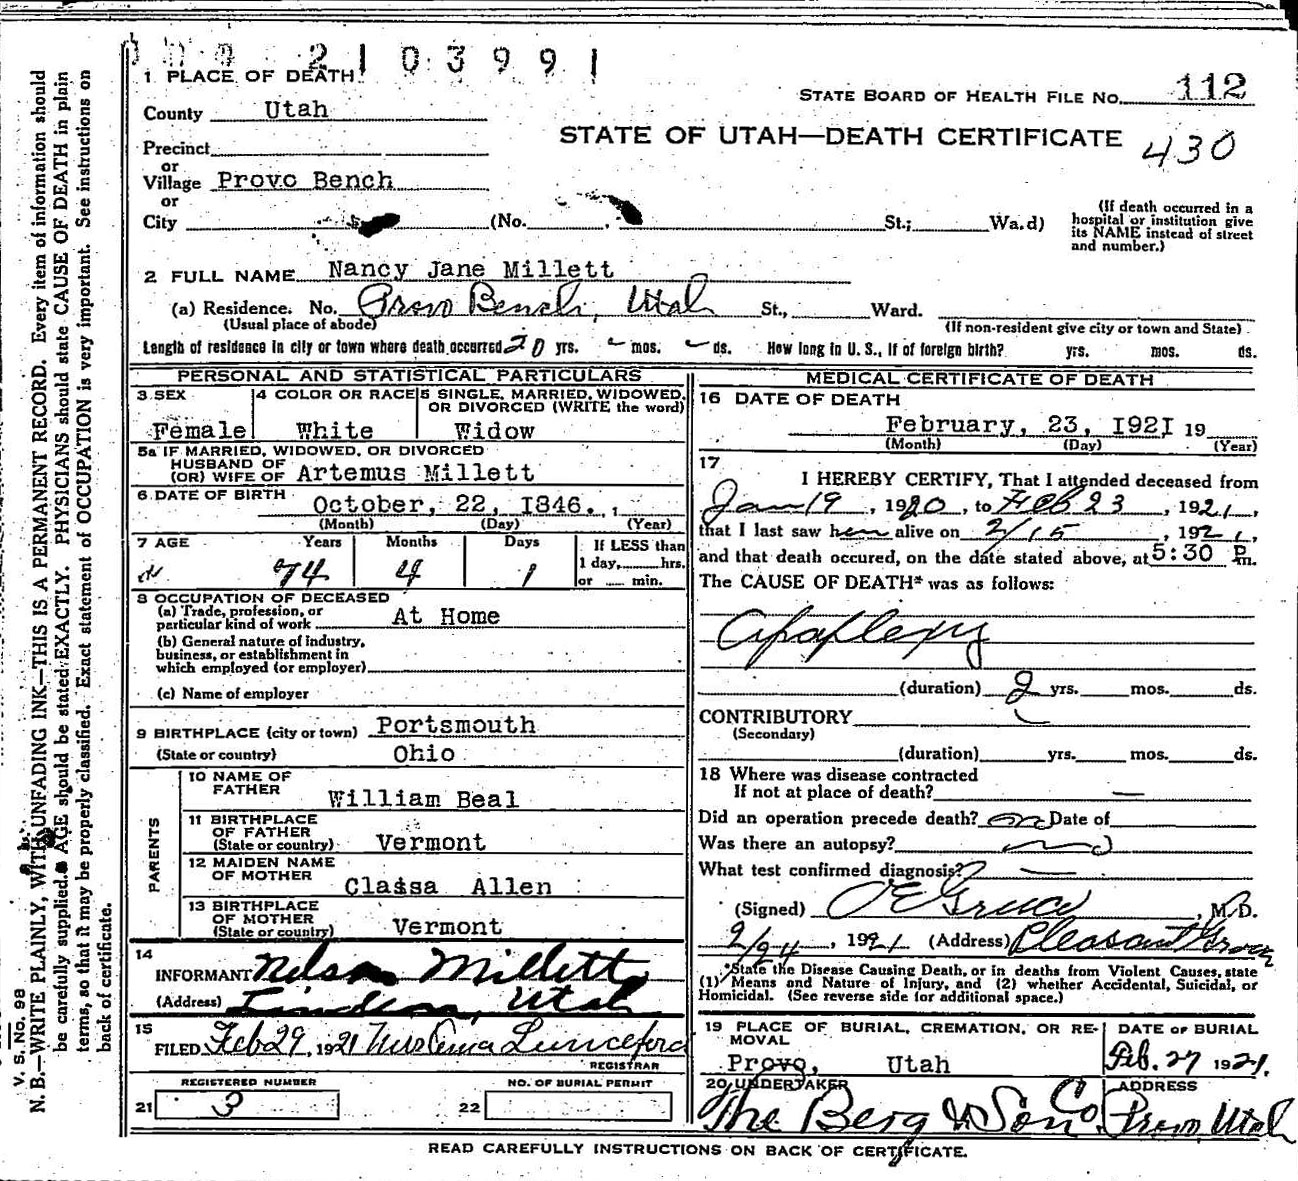 2 1 0 3 9 9 1
1 PLACE OF DEATH
STATE BOARD OF HEALTH FILE No. 112
County Utah
STATE OF UTAH—DEATH CERTIFICATE 430
Precinct
or
Village Provo Bench
or
City (No. St.; Wa.d)
(If death occurred in a
hospital or institution give
its NAME instead of street
and number.)
2 FULL NAME Nancy Jane Millett
(a) Residence. No. Provo Bench, Utah St., Ward.
(Usual place of abode)
(If non-resident give city or town and State)
Length of residence in city or town where death occurred 20 yrs. - mos. - ds. How long in U. S., if of foreign birth? yrs. mos. ds.
PERSONAL AND STATISTICAL PARTICULARS
3 SEX 4 COLOR OR RACE 5 SINGLE, MARRIED, WIDOWED,
OR DIVORCED (WRITE the word)
Female White Widow
5a IF MARRIED, WIDOWED, OR DIVORCED
HUSBAND OF
(OR) WIFE OF Artemus Millett
6 DATE OF BIRTH October, 22, I846.
(Month) (Day) (Year)
7 AGE Years Months Days If LESS than
1 day, hrs.
74 4 1 or min.
8 OCCUPATION OF DECEASED
(a) Trade, profession, or
particular kind of work At Home
(b) General nature of industry,
business, or establishment in
which employed (or employer)
(c) Name of employer
9 BIRTHPLACE (city or town) Portsmouth
(State or country) Ohio
PARENTS
10 NAME OF
FATHER William Beal
11 BIRTHPLACE
OF FATHER
(State or country) Vermont
12 MAIDEN NAME
OF MOTHER Claissa Allen
13 BIRTHPLACE
OF MOTHER
(State or country) Vermont
14
INFORMANT Nelson Millett
(Address) Lindon, Utah
15
FILED Feb 29, 1921 Mrs Lunceford
REGISTRAR
REGISTERED NUMBER NO. OF BURIAL PERMIT
21 3 22
MEDICAL CERTIFICATE OF DEATH
16 DATE OF DEATH
February, 23, I92I 19
(Month) (Day) (Year)
17
I HEREBY CERTIFY, That I attended deceased from
Jan 19, 1920, to Feb 23, 1921,
that I last saw her alive on 2/15, 1921,
and that death occured, on the date stated above, at 5:30 P.m.
The CAUSE OF DEATH* was as follows:
Apoplexy
(duration) 2 yrs. mos. ds.
CONTRIBUTORY
(Secondary)
(duration) yrs. mos. ds.
18 Where was disease contracted
If not at place of death? —
Did an operation precede death? no Date of
Was there an autopsy? no
What test confirmed diagnosis? —
(Signed) O E Grua, M. D.
2/24, 1921 (Address) Pleasant Grove
*State the Disease Causing Death, or in deaths from Violent Causes, state
(1) Means and Nature of Injury, and (2) whether Accidental, Suicidal, or
Homicidal. (See reverse side for additional space.)
19 PLACE OF BURIAL, CREMATION, OR RE-
MOVAL
Provo, Utah
DATE OF BURIAL
Feb. 27 1921.
20 UNDERTAKER
The Berg & Son Co.
ADDRESS
Provo, Utah
READ CAREFULLY INSTRUCTIONS ON BACK OF CERTIFICATE.
V. S. No. 98
N. B.—WRITE PLAINLY, WITH UNFADING INK—THIS IS A PERMANENT RECORD. Every item of information should
be carefully supplied. AGE should be stated EXACTLY. PHYSICIANS should state CAUSE OF DEATH in plain
terms, so that it may be properly classified. Exact statement of OCCUPATION is very important. See instructions on
back of certificate.